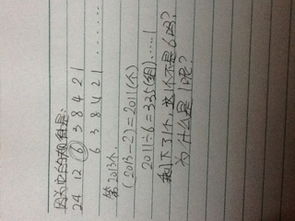 因为它的规律是：
24 12 6 3 8 4 2 1
6 3 8 4 2 1 ……
第2013个.
(2013-2)=2011(个)
2011÷6=335(组)……1
剩下了1个，第1个不是6吗？
为什么是1呢？